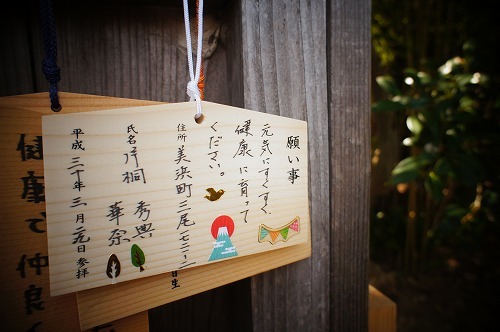 願い事
元気にすくすく
健康に育って
ください。
住所 美浜町三尾七二一二
氏名 片桐 秀興
華奈
平成三十年三月二九日参拝
日生
健康で仲良